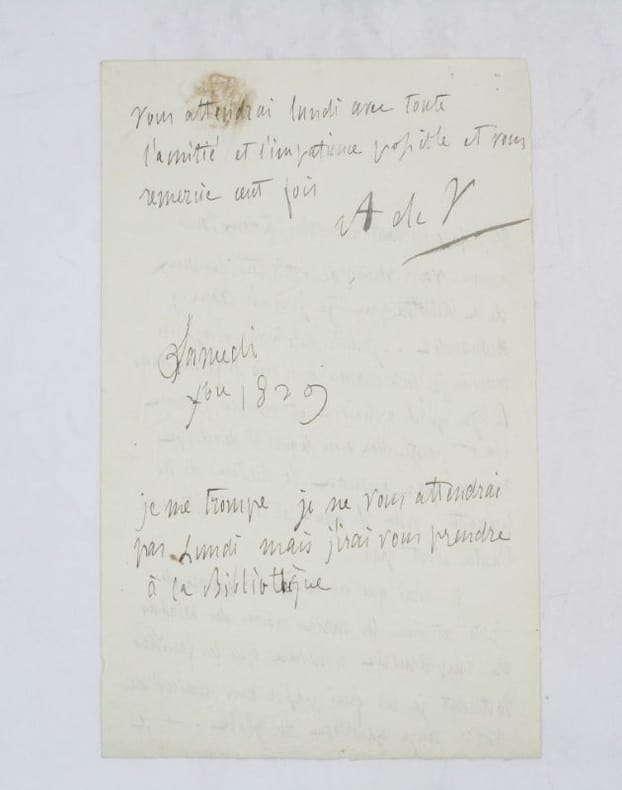 vous attendrai lundi avec toute
l'amitié et l'impatience possible et vous
remercie cent fois
A de V
Samedi
1829
je me trompe je ne vous attendrai
pas Lundi mais j'irai vous prendre
à la Bibliothèque